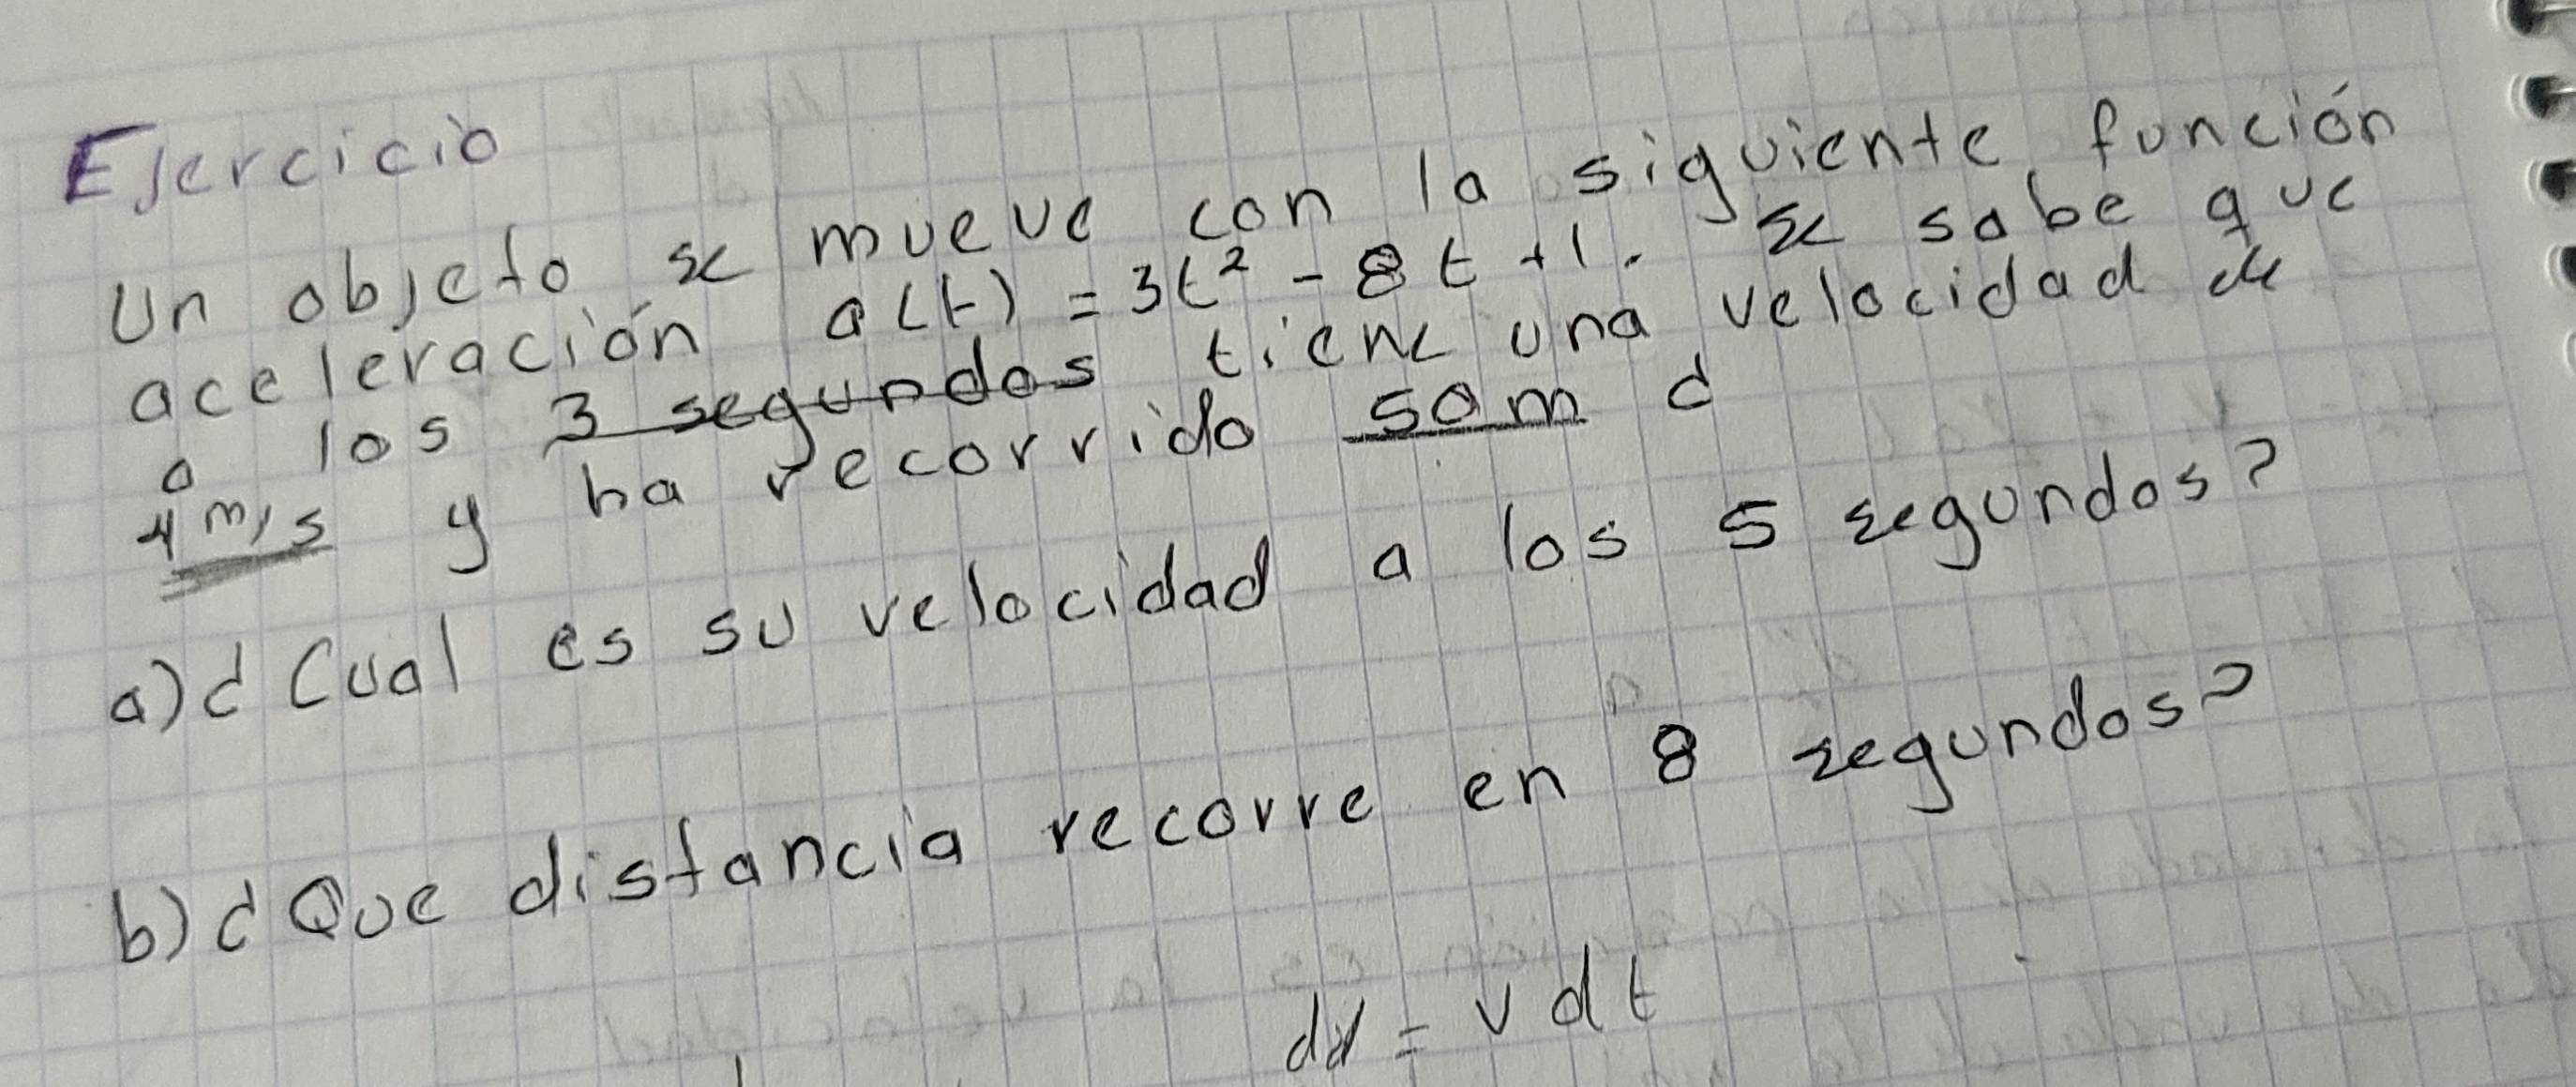 Ejercicio
Un objeto se mueve con la siguiente función
aceleración a(t) = 3t² - 8t + 1. se sabe que
a los 3 segundos tiene una velocidad de
4 m/s y ha recorrido 50 m d
a) ¿ Cual es su velocidad a los 5 segundos?
b) ¿ Que distancia recorre en 8 segundos?
dd = v dt